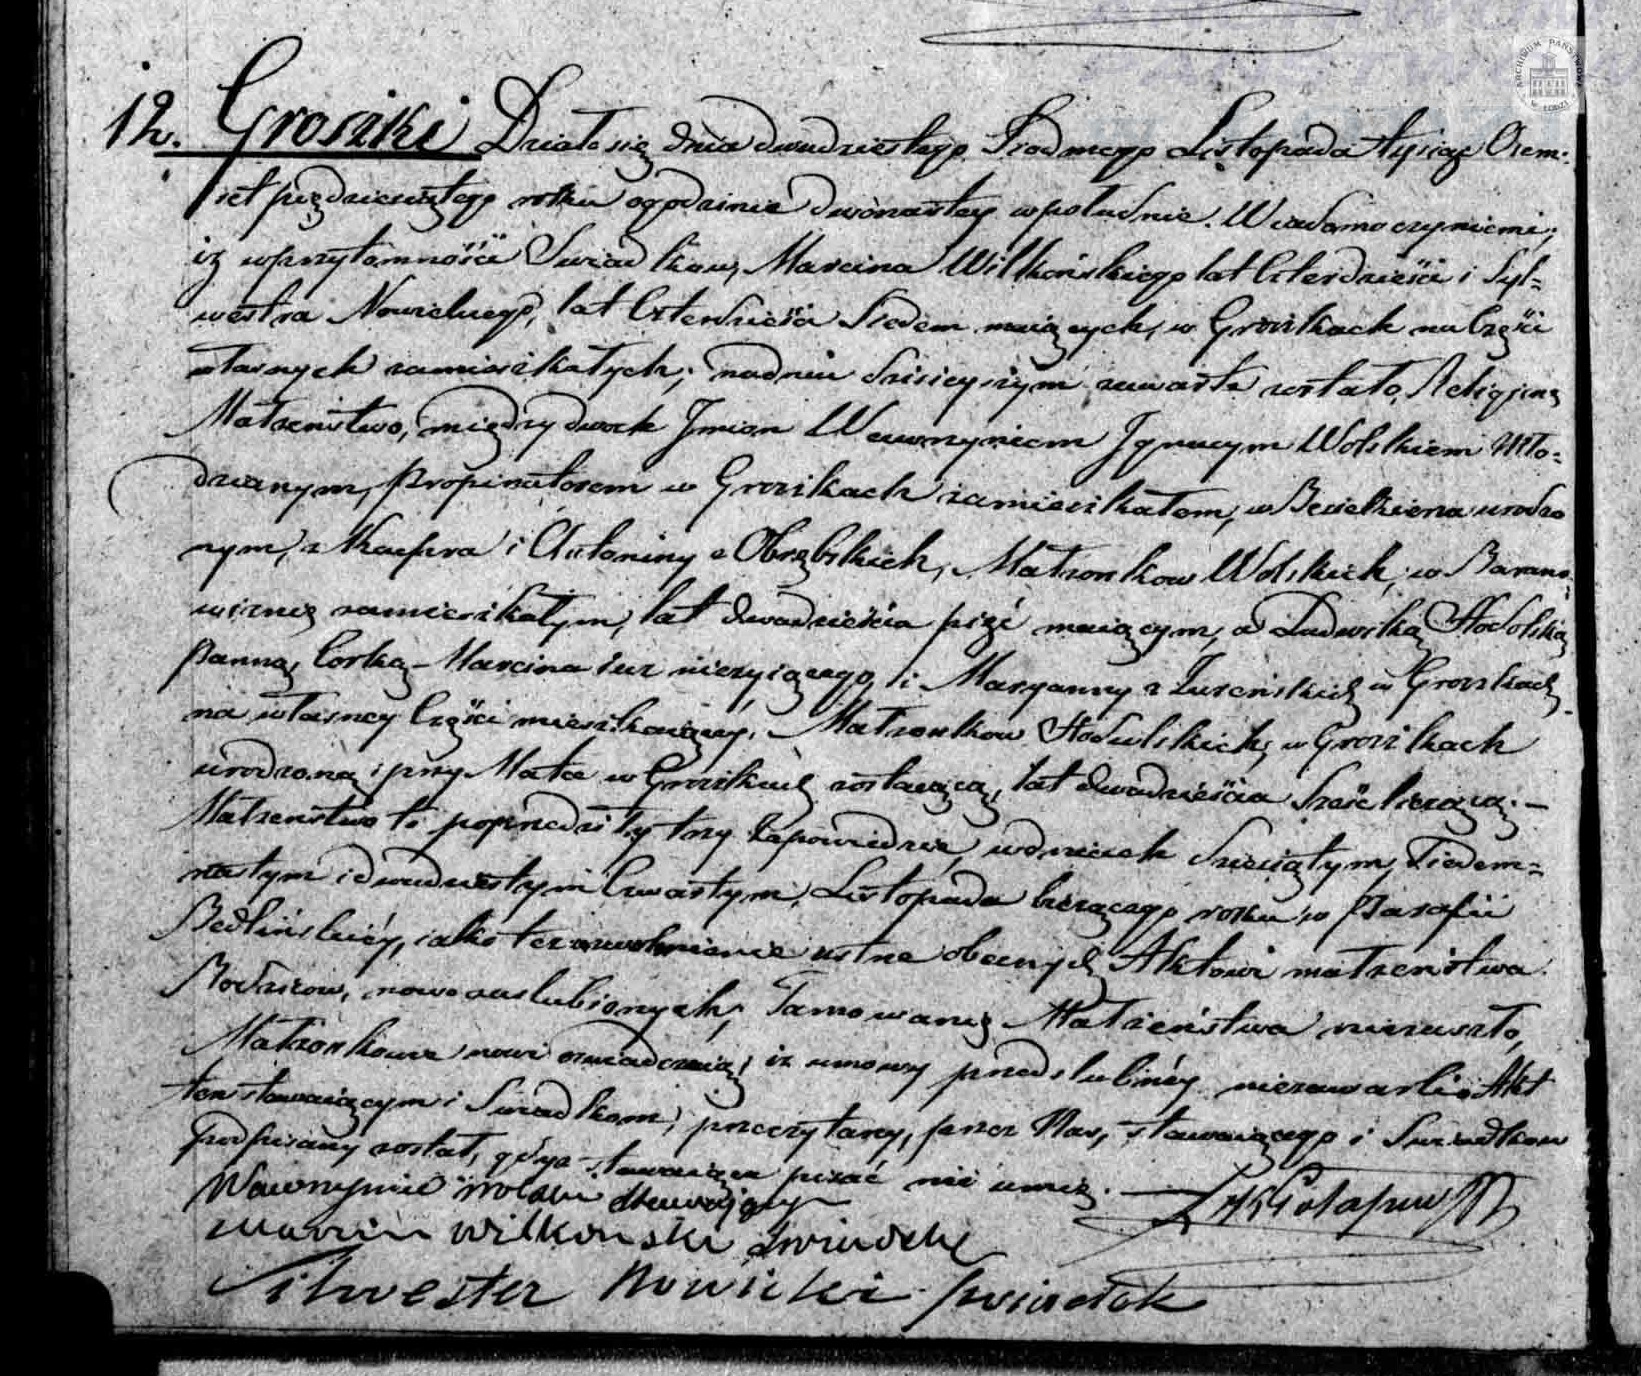 12. Groszki Działo się dnia dwudziestego Siodmego Listopada tysiąc Osem-
set pięćdziesiątego roku o godzinie dwónastey w południe. Wiadomo czyniemi,
iż w przytomności Swiadkow, Marcina Wilkońskiego lat Czterdzieści i Syl-
westra Nowickiego, lat Czterdzieści Siedem maiących, w Groszkach na Części
własnych zamieszkałych, na dniu dzisieyszym zawarte zostało Religijne
Małżeństwo, między dwoch Jmion Wawrzyniem Jgnacym Wolskiem Mło-
dzianym, Propinatorem w Groszkach zamieszkałem, w urodzo
nym, z Kacpra i Antoniny z Obrębskich, Małżonkow Wolskich, w
zamieszkałym, lat dwadzieścia pięć maiącym, a Ludwiką Stodolską
Panną, Corką Marcina iuz nieżyiącego, i Maryanny z w Groszkach
na własney Części mieszkaiącey, Małżonkow Stodulskich, w Groszkach
urodzoną i przy Matce w Groszkach zostaiącą, lat dwadzieścia Sześć liczącą. —
Małżeństwo to poprzedziły trzy Zapowiedzie, w dniach dziesiątym, Siedem-
nastym i dwudziestym Czwartym, Listopada bieżącego roku w Parafii
Bedlińskiéy, iako też zezwolenie ustne obecnych Aktowi małżeństwa
Rodzicow, nowo zaslubionych, Tamowanie Małżeństwa niezaszło,
Małżonkowie nowi oswiadczaią, iż umowy przedslubnéy niezawarli. Akt
ten stawaiącym i Swiadkom, przeczytany, przez Nas, stawaiącego i Swiadkow
podpisany został, gdyż stawaiąca pisać nie umie.
Wawrzynie Wolski stawaiący
Marcin Wilkonski swiadek
Silwester Nowicki swiadek